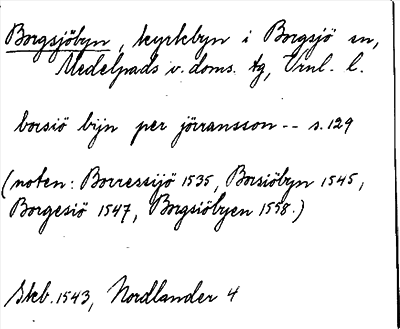 Borgsjöbyn, kyrkbyn i Borgsjö sn,
Medelpads v. doms. tg, Vnl. l.
borsiö bijn per jörransson -- s. 129
(noten: Borressijö 1535, Borsiöbyn 1545,
Borgesiö 1547, Borgsiöbyen 1558.)
Skb. 1543, Nordlander 4